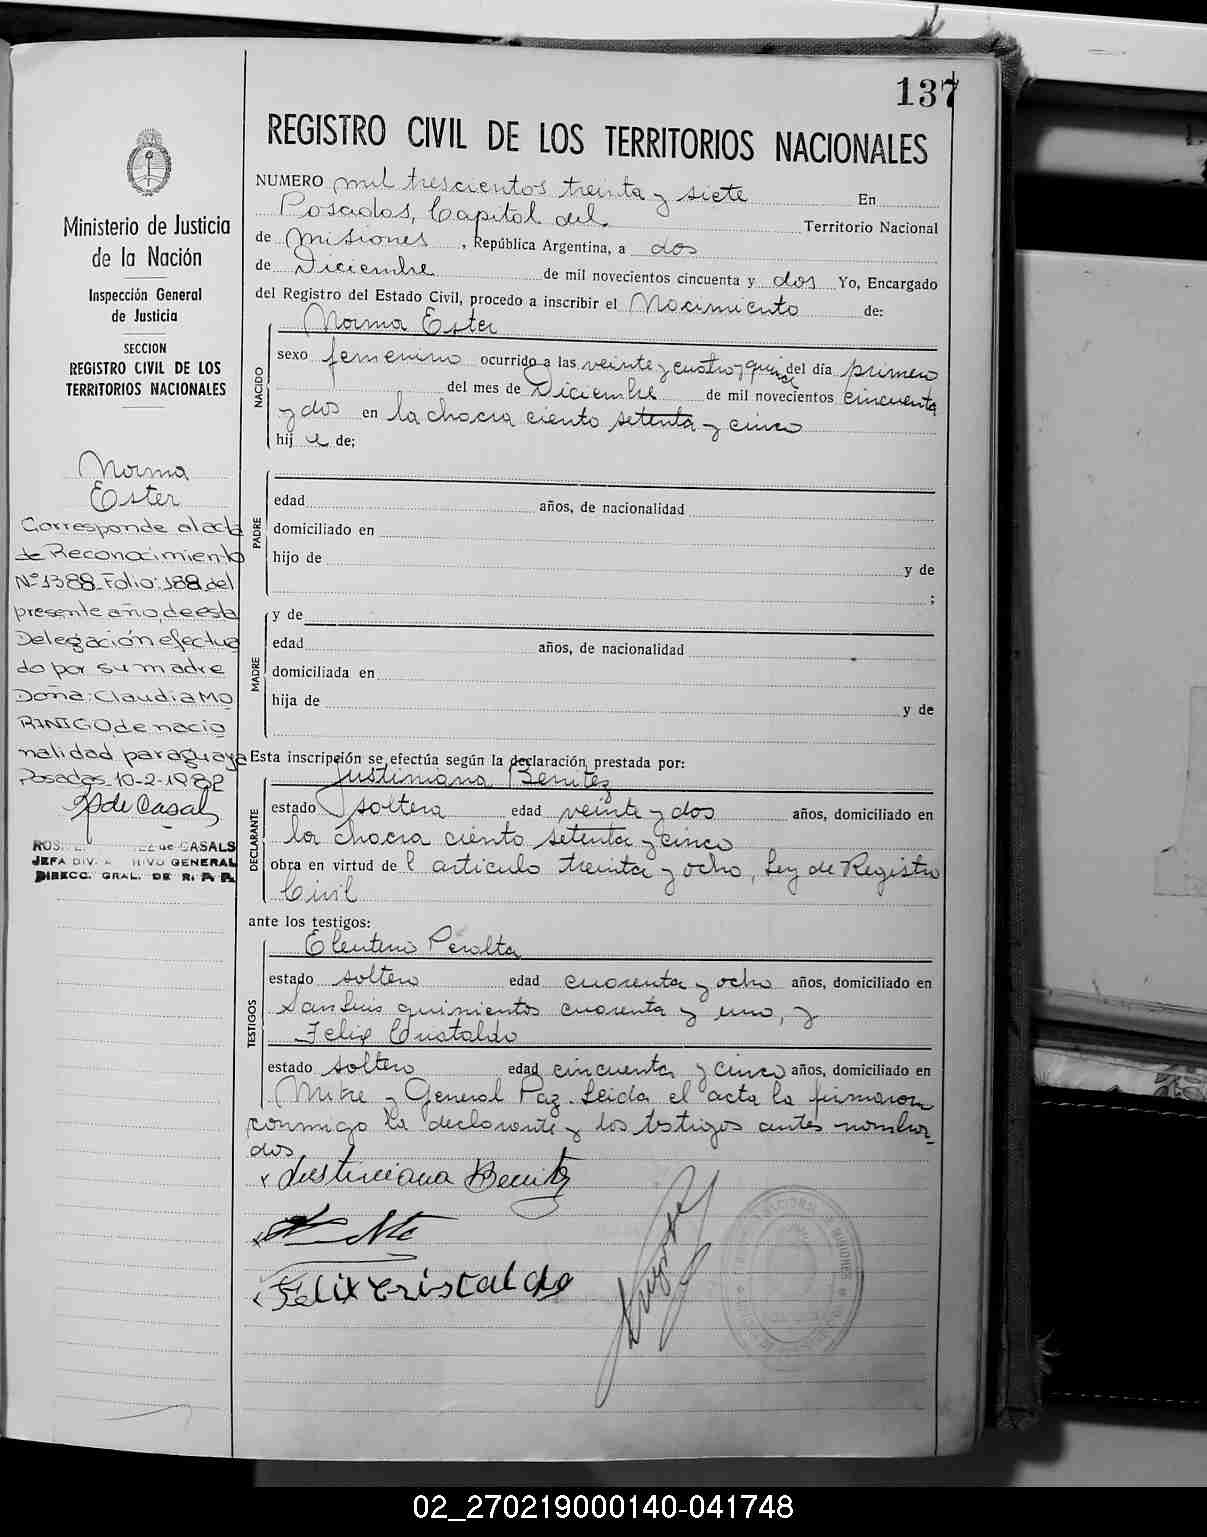 137
REGISTRO CIVIL DE LOS TERRITORIOS NACIONALES
NUMERO mil trescientos treinta y siete En
Posadas, Capital del Territorio Nacional
de Misiones, República Argentina, a dos
de Diciembre de mil novecientos cincuenta y dos Yo, Encargado
del Registro del Estado Civil, procedo a inscribir el Nacimiento de:
NACIDO
Norma Ester
sexo femenino ocurrido a las veinte y cuatro y quince del día primero
del mes de Diciembre de mil novecientos cincuenta
y dos en la chacra ciento setenta y cinco
hij a de;
PADRE
edad años, de nacionalidad
domiciliado en
hijo de y de
;
MADRE
y de
edad años, de nacionalidad
domiciliada en
hija de y de
Esta inscripción se efectúa según la declaración prestada por:
DECLARANTE
Justiniana Benitez
estado soltera edad veinte y dos años, domiciliado en
la chacra ciento setenta y cinco
obra en virtud de l articulo treinta y ocho, Ley de Registro
Civil
ante los testigos:
TESTIGOS
Eleuterio Peralta
estado soltero edad cuarenta y ocho años, domiciliado en
San Luis quinientos cuarenta y uno, y
Felix Cristaldo
estado soltero edad cincuenta y cinco años, domiciliado en
Mitre y General Paz. Leida el acta la firmaron
conmigo la declarante y los testigos antes nombra-
dos
Justiniana Benitez
Felix Cristaldo
Ministerio de Justicia
de la Nación
Inspección General
de Justicia
SECCION
REGISTRO CIVIL DE LOS
TERRITORIOS NACIONALES
Norma
Ester
Corresponde al acta
de Reconocimiento
Nº 1388 Folio: 188 del
presente año, de esta
Delegación efectua
do por su madre
Doña: Claudia MO
RINIGO, de nacio
nalidad paraguaya
Posadas 10-2-1982
de Casals
DE CASALS
JEFA DIV. GENERAL
DIRECC. GRAL. DE R. P. P.
02_270219000140-041748